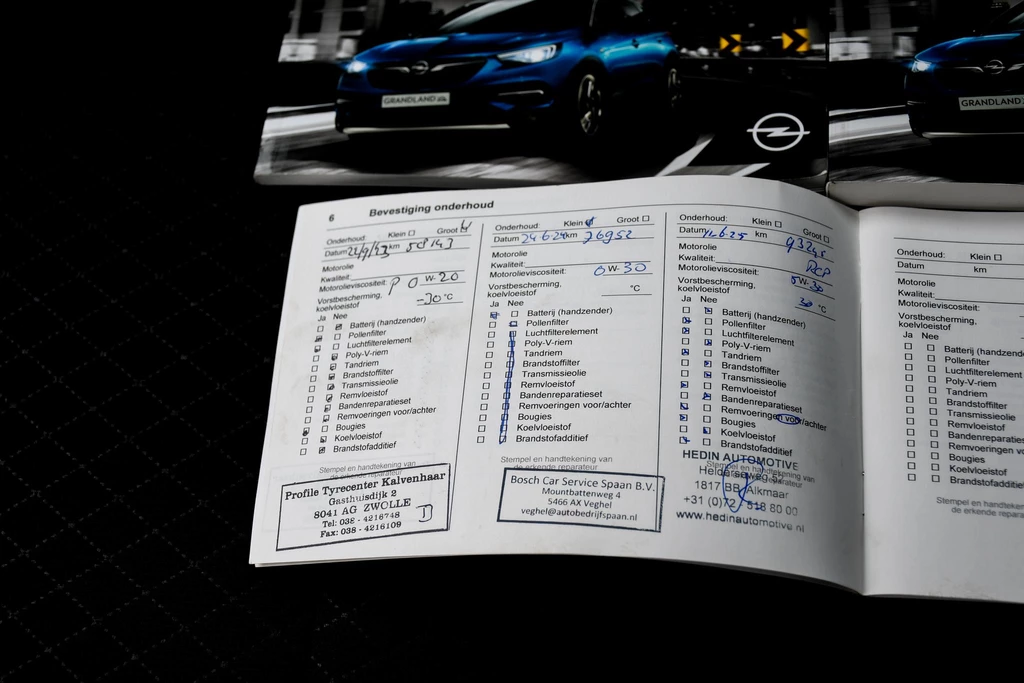 GRANDLAND X
GRANDLAND
6 Bevestiging onderhoud
Onderhoud: Klein Groot
Datum km 58143
Motorolie
Kwaliteit:
Motorolieviscositeit: 0 W-20
Vorstbescherming,
koelvloeistof -30 °C
Ja Nee
Batterij (handzender)
Pollenfilter
Luchtfilterelement
Poly-V-riem
Tandriem
Brandstoffilter
Transmissieolie
Remvloeistof
Bandenreparatieset
Remvoeringen voor/achter
Bougies
Koelvloeistof
Brandstofadditief
Stempel en handtekening van
de erkende reparateur
Profile Tyrecenter Kalvenhaar
Gasthuisdijk 2
8041 AG ZWOLLE
Tel: 038 - 4216748
Fax: 038 - 4216109
Onderhoud: Klein Groot
Datum 24-6-24 km 76952
Motorolie
Kwaliteit:
Motorolieviscositeit: 0 W-30
Vorstbescherming,
koelvloeistof °C
Ja Nee
Batterij (handzender)
Pollenfilter
Luchtfilterelement
Poly-V-riem
Tandriem
Brandstoffilter
Transmissieolie
Remvloeistof
Bandenreparatieset
Remvoeringen voor/achter
Bougies
Koelvloeistof
Brandstofadditief
Stempel en handtekening van
de erkende reparateur
Bosch Car Service Spaan B.V.
Mountbattenweg 4
5466 AX Veghel
veghel@autobedrijfspaan.nl
Onderhoud: Klein Groot
Datum km
Motorolie
Kwaliteit:
Motorolieviscositeit: W-30
Vorstbescherming,
koelvloeistof 30 °C
Ja Nee
Batterij (handzender)
Pollenfilter
Luchtfilterelement
Poly-V-riem
Tandriem
Brandstoffilter
Transmissieolie
Remvloeistof
Bandenreparatieset
Remvoeringen voor/achter
Bougies
Koelvloeistof
Brandstofadditief
Stempel en handtekening van
HEDIN AUTOMOTIVE
1817 BB Alkmaar
+31 (0)72 - 518 80 00
www.hedinautomotive.nl
Onderhoud: Klein
Datum km
Motorolie
Kwaliteit:
Motorolieviscositeit:
Vorstbescherming,
koelvloeistof
Ja Nee
Batterij (handzende
Pollenfilter
Luchtfilterelement
Poly-V-riem
Tandriem
Brandstoffilter
Transmissieolie
Remvloeistof
Bandenreparaties
Remvoeringen vo
Bougies
Koelvloeistof
Brandstofadditief
Stempel en handteken
de erkende reparat